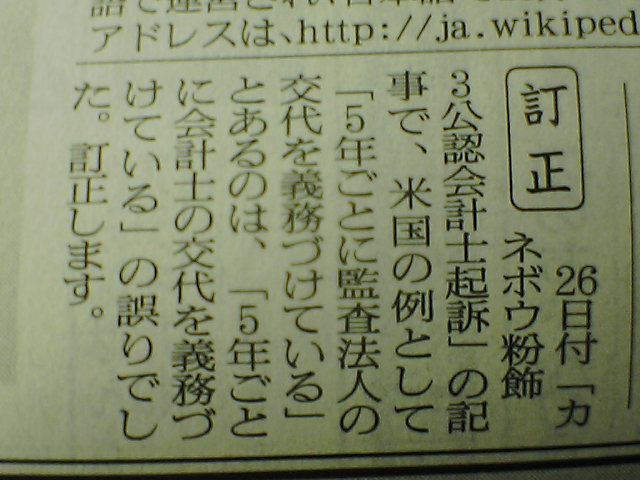 アドレスは、http://ja.wikiped
訂正
26日付「カ
ネボウ粉飾
3公認会計士起訴」の記
事で、米国の例として
「5年ごとに監査法人の
交代を義務づけている」
とあるのは、「5年ごと
に会計士の交代を義務づ
けている」の誤りでし
た。訂正します。